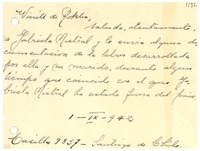 Winétt de Rokha,
saluda, atentamente,
a Gabriela Mistral, y le envía alguna do-
cumentación de la labor desarrollada
por ella y su marido, durante algún
tiempo que coincide con el que Ga-
briela Mistral ha estado fuera del país
1-IX-942
Casilla 7857 - Santiago de Chile.